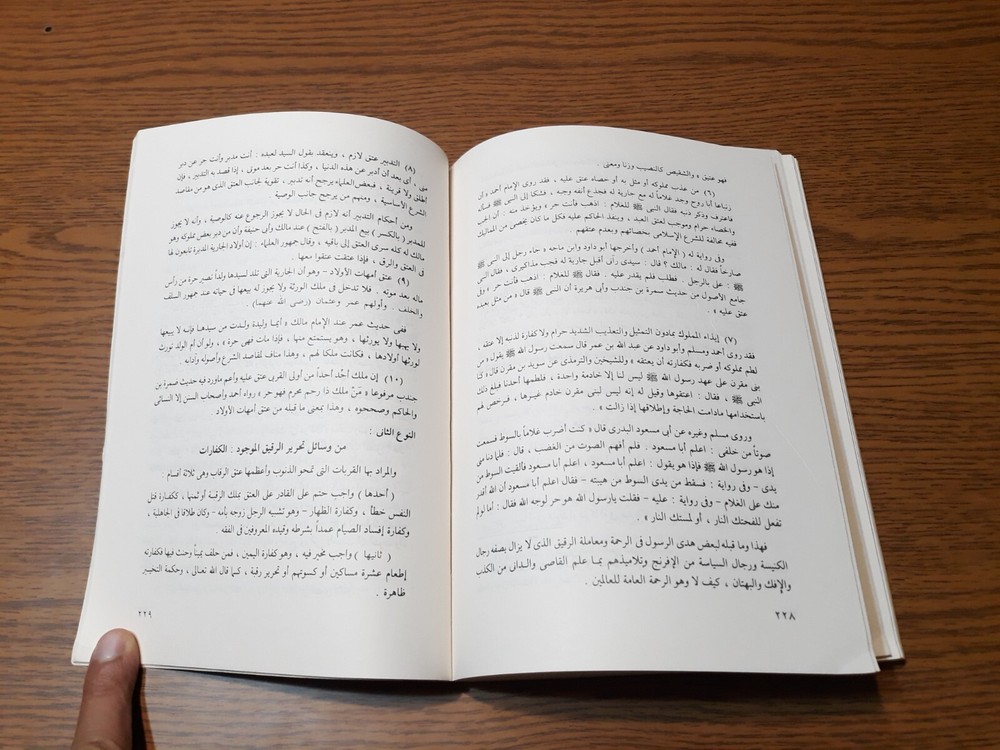 فهو عتيق » والتشقيص كالنصيب وزنا ومعنى .
(٦) من عذب مملوكه أو مثل به أو خصاه عتق عليه ، فقد روى الإمام أحمد « أن
زنباعا أبا روح وجد غلاماً له مع جارية له فجدع أنفه وجبه ، فشكا إلى النبى ﷺ فسأله
فاعترف وذكر ذنبه فقال النبى ﷺ للغلام : اذهب فأنت حر » ويؤخذ منه : أن الجب
والخصاء حرام وموجب لعتق العبد ، وينفذ الحاكم عليه فكل ما كان يخصى من المماليك
ففيه مخالفة للشرع الإسلامى بخصائهم وبعدم عتقهم .
وفى رواية له ( الإمام أحمد ) وأخرجها أبو داود وابن ماجه « جاء رجل إلى النبى ﷺ
صارخاً فقال له : مالك ؟ قال : سيدى رآنى أقبل جارية له فجب مذاكيرى ، فقال النبى
ﷺ : على بالرجل . فطلب فلم يقدر عليه . فقال ﷺ للغلام : اذهب فأنت حر » وفى
جامع الأصول من حديث سمرة بن جندب وأبى هريرة أن النبى ﷺ قال « من مثل بعبده
عتق عليه » .
(٧) إيذاء المملوك بمادون التمثيل والتعذيب الشديد حرام ولا كفارة لذنبه إلا عتقه .
فقد روى أحمد ومسلم وأبو داود عن عبد الله بن عمر قال سمعت رسول الله ﷺ يقول « من
لطم مملوكه أو ضربه فكفارته أن يعتقه » وللشيخين والترمذى عن سويد بن مقرن قال « كنا
بنى مقرن على عهد رسول الله ﷺ ليس لنا إلا خادمة واحدة ، فلطمها أحدنا فبلغ ذلك
النبى ﷺ ، فقال : اعتقوها وقيل له إنه ليس لبنى مقرن خادم غيرها ، فرخص لهم
باستخدامها مادامت الحاجة وإطلاقها إذا زالت » .
وروى مسلم وغيره عن أبى مسعود البدرى قال « كنت أضرب غلاماً بالسوط فسمعت
صوتاً من خلفى : اعلم أبا مسعود . فلم أفهم الصوت من الغضب ، قال : فلما دنا منى
إذا هو رسول الله ﷺ فإذا هو يقول : اعلم أبا مسعود ، اعلم أبا مسعود فألقيت السوط من
يدى - وفى رواية : فسقط من يدى السوط من هيبته - فقال اعلم أبا مسعود أن الله أقدر
منك على الغلام - وفى رواية : عليه - فقلت يارسول الله هو حر لوجه الله فقال : أما لو لم
تفعل للفحتك النار ، أو لمستك النار » .
فهذا وما قبله لبعض هدى الرسول فى الرحمة ومعاملة الرقيق الذى لا يزال يصفه رجال
الكنيسة ورجال السياسة من الإفرنج وتلاميذهم بما علم القاصى والدانى من الكذب
والإفك والبهتان ، كيف لا وهو الرحمة العامة للعالمين .
٢٢٨
(٨) التدبير عتق لازم ، وينعقد بقول السيد لعبده : أنت مدبر وأنت حر عن دبر
منى ، أى بعد أن أدبر عن هذه الدنيا ، وكذا أنت حر بعد موتى . إذا قصد به التدبير ، فإن
أطلق ولا قرينة ، فبعض العلماء يرجح أنه تدبير ، تقوية لجانب العتق الذى هو من مقاصد
الشرع الأساسية ، ومنهم من يرجح جانب الوصية
ومن أحكام التدبير أنه لازم فى الحال لا يجوز الرجوع فيه كالوصية ، وأنه لا يجوز
للمدبر ( بالكسر ) بيع المدبر ( بالفتح ) عند مالك وأبى حنيفة وأن من دبر بعض مملوكه وهو
مالك له كله سرى العتق إلى باقيه ، وقال جمهور العلماء : إن أولاد الجارية المدبرة تابعون لها
فى العتق والرق ، فإذا عتقت عتقوا معها .
(٩) عتق أمهات الأولاد - وهو أن الجارية التى تلد لسيدها ولداً تصير حرة من رأس
ماله بعد موته . فلا تدخل فى ملك الورثة ولا يجوز له بيعها فى حياته عند جمهور السلف
والخلف . وأولهم عمر وعثمان (رضى الله عنهما) .
ففى حديث عمر عند الإمام مالك « أيما وليدة ولدت من سيدها فإنه لا يبيعها
ولا يهبها ولا يورثها ، وهو يستمتع منها ، فإذا مات فهى حرة » ، ولو أن أم الولد تورث
لورثها أولادها ، فكانت ملكا لهم . وهذا مناف لمقاصد الشرع وأصوله وآدابه .
(١٠) إن ملك أحد أحداً من أولى القربى عتق عليه وأعم ماورد فيه حديث سمرة بن
جندب مرفوعا « مَنْ ملك ذا رحم محرم فهو حر » رواه أحمد وأصحاب السنن إلا النسائى
والحاكم وصححوه ، وهذا بمعنى ما قبله من عتق أمهات الأولاد .
النوع الثانى :
من وسائل تحرير الرقيق الموجود : الكفارات
والمراد بها القربات التى تمحو الذنوب وأعظمها عتق الرقاب وهى ثلاثة أقسام :
( أحدها ) واجب حتم على القادر على العتق بملك الرقبة أو ثمنها ، ككفارة قتل
النفس خطأ ، وكفارة الظهار - وهو تشبيه الرجل زوجه بأمه - وكان طلاقا فى الجاهلية ،
وكفارة إفساد الصيام عمداً بشرطه وقيده المعروفين فى الفقه .
( ثانيها ) واجب مخير فيه ، وهو كفارة اليمين ، فمن حلف يميناً وحنث فيها فكفارته
إطعام عشرة مساكين أو كسوتهم أو تحرير رقبة ، كما قال الله تعالى ، وحكمة التخيير
ظاهرة .
٢٢٩